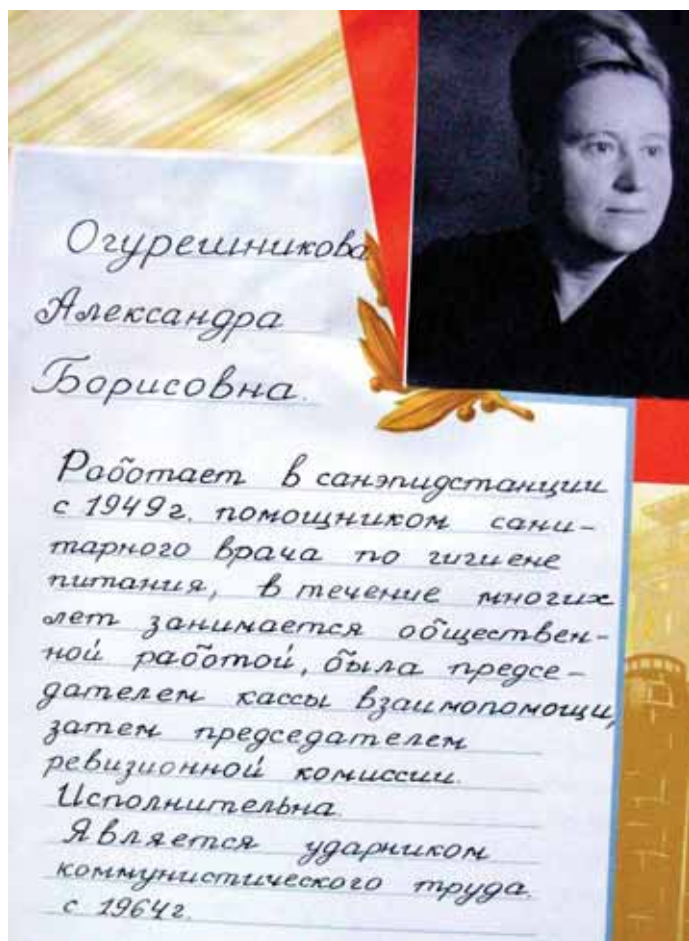 Огурешникова
Александра
Борисовна.
Работает в санэпидстанции
с 1949г. помощником сани-
тарного врача по гигиене
питания, в течение многих
лет занимается обществен-
ной работой, была предсе-
дателем кассы взаимопомощи,
затем председателем
ревизионной комиссии.
Исполнительна.
Является ударником
коммунистического труда.
с 1964г.